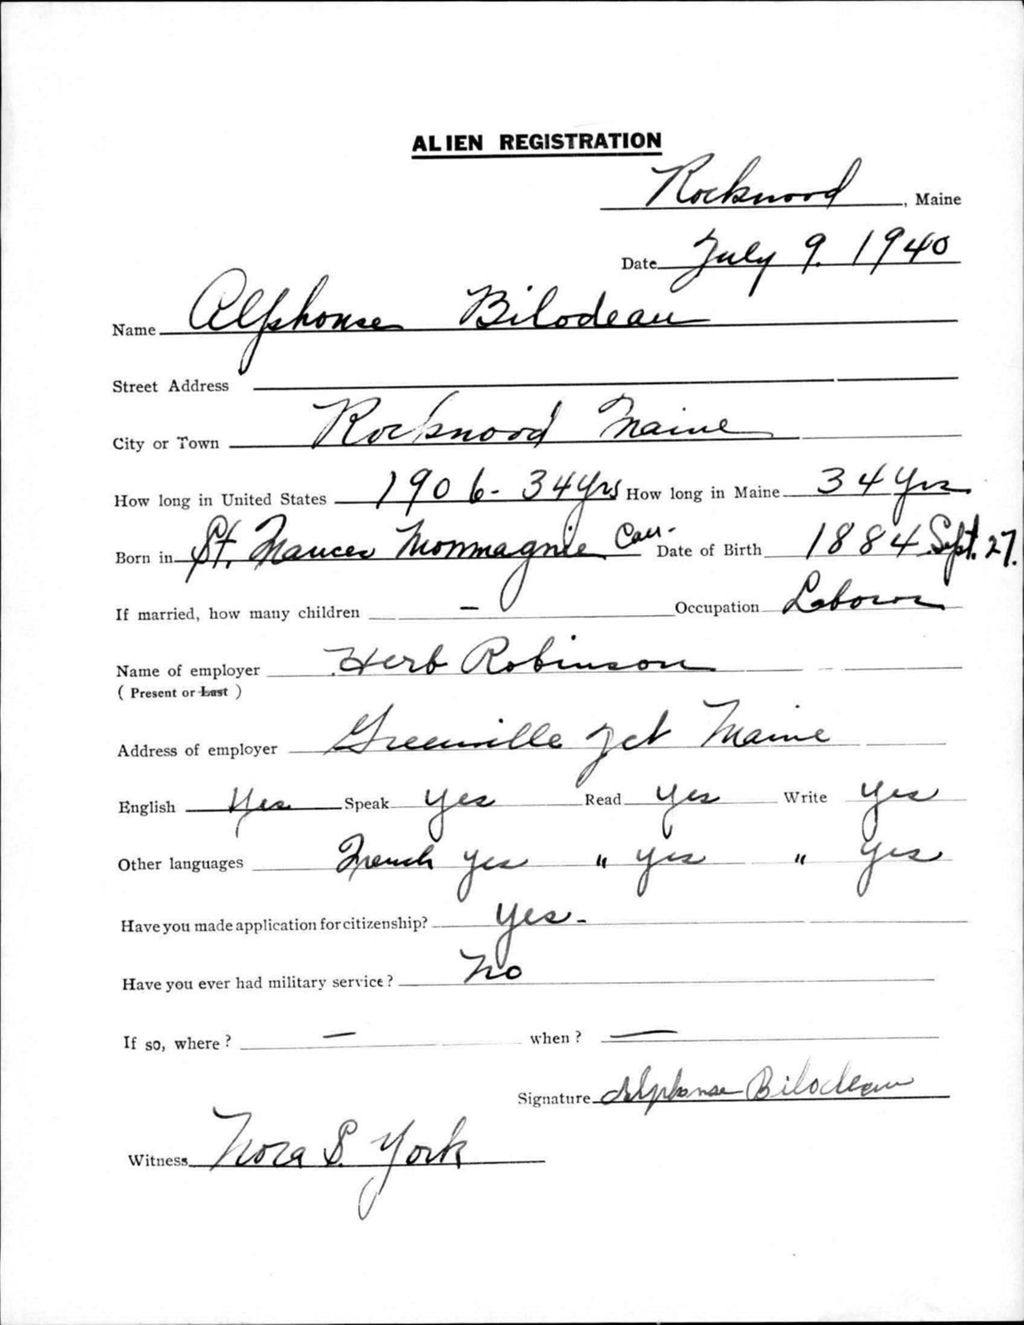 ALIEN REGISTRATION
Rockwood, Maine
Date July 9. 1940
Name Alphonse Bilodeau
Street Address
City or Town Rockwood Maine
How long in United States 1906 - 34 Yrs How long in Maine 34 Yrs
Born in St. Frances Monmagnie Can- Date of Birth 1884 Sept. 27.
If married, how many children — Occupation Laborer
Name of employer Herb Robinson
(Present or Last)
Address of employer Greenville Jct Maine
English Yes Speak Yes Read Yes Write Yes
Other languages French Yes " Yes " Yes
Have you made application for citizenship? Yes-
Have you ever had military service? No
If so, where? — when? —
Signature Alphonse Bilodeau
Witness Nora S. York